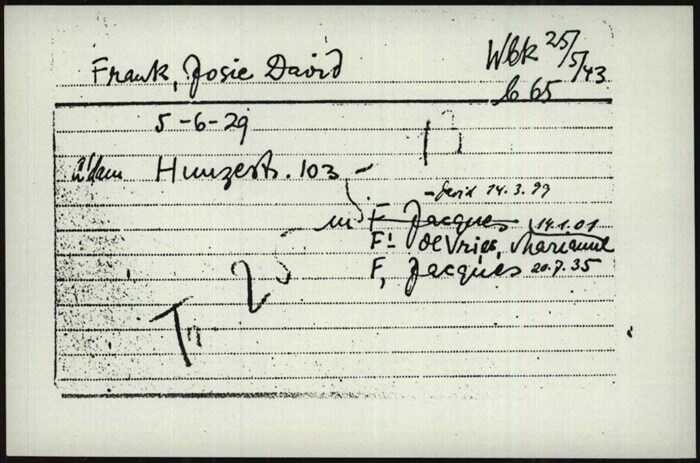 Frank, Josie David
Wbk 25/5/43
b 65
5-6-29
A'dam Hunzestr. 103 -
- David 14.3.99
m F Jacques 14.1.01
F- de Vries, Marianne
F, Jacques 20.7.35
2
T